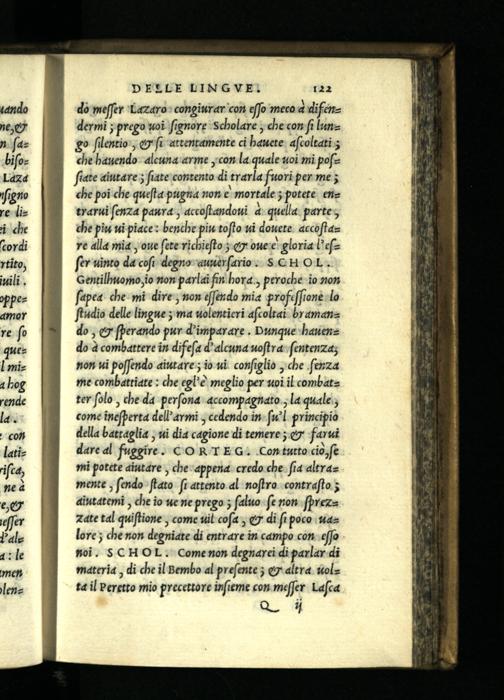 DELLE LINGVE. 122
do messer Lazaro congiurar con esso meco à difen=
dermi; prego uoi signore Scholare, che con si lun=
go silentio, & si attentamente ci hauete ascoltati;
che hauendo alcuna arme, con la quale uoi mi pos=
siate aiutare; siate contento di trarla fuori per me;
che poi che questa pugna non è mortale; potete en=
trarui senza paura, accostandoui à quella parte,
che piu ui piace: benche piu tosto ui douete accosta=
re alla mia, oue sete richiesto; & oue è gloria l'es=
ser uinto da cosi degno auuersario. SCHOL.
Gentilhuomo, io non parlai fin hora, peroche io non
sapea che mi dire, non essendo mia professione lo
studio delle lingue; ma uolentieri ascoltai braman=
do, & sperando pur d'imparare. Dunque hauen=
do à combattere in difesa d'alcuna uostra sentenza;
non ui possendo aiutare; io ui consiglio, che senza
me combattiate: che egl'è meglio per uoi il combat=
ter solo, che da persona accompagnato, la quale,
come inesperta dell'armi, cedendo in su'l principio
della battaglia, ui dia cagione di temere; & farui
dare al fuggire. CORTEG. Con tutto ciò, se
mi potete aiutare, che appena credo che sia altra=
mente, sendo stato si attento al nostro contrasto;
aiutatemi, che io ue ne prego; saluo se non sprez=
zate tal quistione, come uil cosa, & di si poco ua=
lore; che non degniate di entrare in campo con esso
noi. SCHOL. Come non degnarei di parlar di
materia, di che il Bembo al presente; & altra uol=
ta il Peretto mio precettore insieme con messer Lasca
Q ij